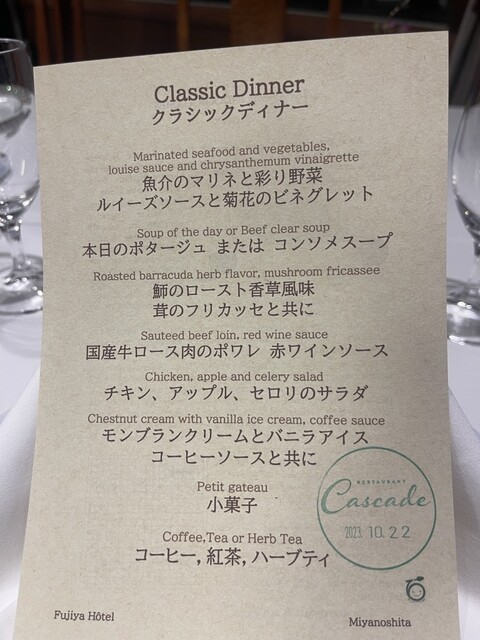 Classic Dinner
クラシックディナー
Marinated seafood and vegetables,
louise sauce and chrysanthemum vinaigrette
魚介のマリネと彩り野菜
ルイーズソースと菊花のビネグレット
Soup of the day or Beef clear soup
本日のポタージュ または コンソメスープ
Roasted barracuda herb flavor, mushroom fricassee
魳のロースト香草風味
茸のフリカッセと共に
Sauteed beef loin, red wine sauce
国産牛ロース肉のポワレ 赤ワインソース
Chicken, apple and celery salad
チキン、アップル、セロリのサラダ
Chestnut cream with vanilla ice cream, coffee sauce
モンブランクリームとバニラアイス
コーヒーソースと共に
Petit gateau
小菓子
RESTAURANT
Cascade
2023. 10. 22
Coffee,Tea or Herb Tea
コーヒー, 紅茶, ハーブティ
Fujiya Hôtel
Miyanoshita